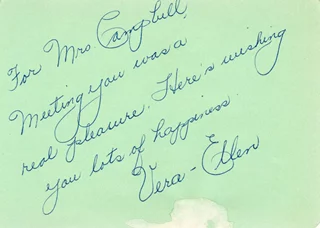 For Mrs. Campbell,
Meeting you was a
real pleasure. Here's wishing
you lots of happiness
Vera-Ellen